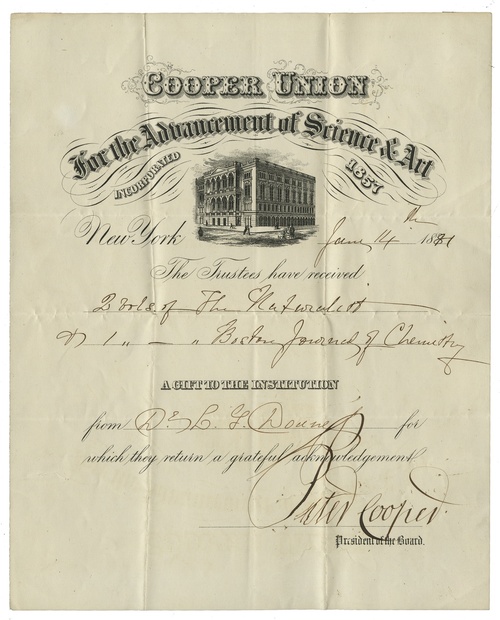 COOPER UNION
For the Advancement of Science & Art
INCORPORATED 1857
New York June 14th 1881
The Trustees have received
2 vols. of The Naturalist
& 1 " — " Boston Journal of Chemistry
A GIFT TO THE INSTITUTION
from Dr L. F. for
which they return a grateful acknowledgement.
Peter Cooper.
President of the Board.